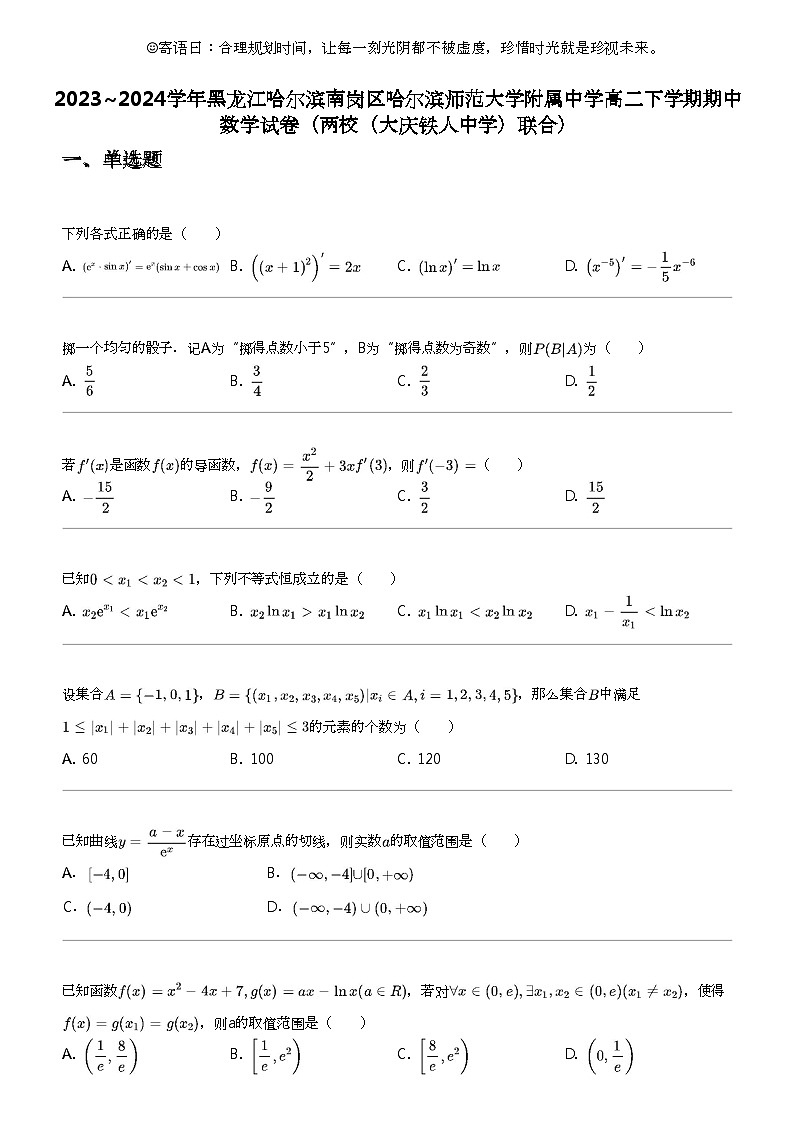 ☺寄语日：合理规划时间，让每一刻光阴都不被虚度，珍惜时光就是珍视未来。
2023~2024学年黑龙江哈尔滨南岗区哈尔滨师范大学附属中学高二下学期期中
数学试卷（两校（大庆铁人中学）联合）
一、单选题
下列各式正确的是（　　）
A. (eˣ · sin x)′ = eˣ(sin x + cos x) B. ((x + 1)²)′ = 2x C. (ln x)′ = ln x D. (x⁻⁵)′ = −1/5 x⁻⁶
掷一个均匀的骰子．记A为“掷得点数小于5”，B为“掷得点数为奇数”，则P(B|A)为（　　）
A. 5/6 B. 3/4 C. 2/3 D. 1/2
若f′(x)是函数f(x)的导函数，f(x) = x²/2 + 3xf′(3)，则f′(−3) =（　　）
A. −15/2 B. −9/2 C. 3/2 D. 15/2
已知0 < x₁ < x₂ < 1，下列不等式恒成立的是（　　）
A. x₂e^{x₁} < x₁e^{x₂} B. x₂ ln x₁ > x₁ ln x₂ C. x₁ ln x₁ < x₂ ln x₂ D. x₁ − 1/x₁ < ln x₂
设集合A = {−1, 0, 1}，B = {(x₁, x₂, x₃, x₄, x₅)|xᵢ ∈ A, i = 1, 2, 3, 4, 5}，那么集合B中满足
1 ≤ |x₁| + |x₂| + |x₃| + |x₄| + |x₅| ≤ 3的元素的个数为（　　）
A. 60 B. 100 C. 120 D. 130
已知曲线y = (a − x)/eˣ存在过坐标原点的切线，则实数a的取值范围是（　　）
A. [−4, 0] B. (−∞, −4]∪[0, +∞)
C. (−4, 0) D. (−∞, −4) ∪ (0, +∞)
已知函数f(x) = x² − 4x + 7, g(x) = ax − ln x(a ∈ R)，若对∀x ∈ (0, e), ∃x₁, x₂ ∈ (0, e)(x₁ ≠ x₂)，使得
f(x) = g(x₁) = g(x₂)，则a的取值范围是（　　）
A. (1/e, 8/e) B. [1/e, e²) C. [8/e, e²) D. (0, 1/e)